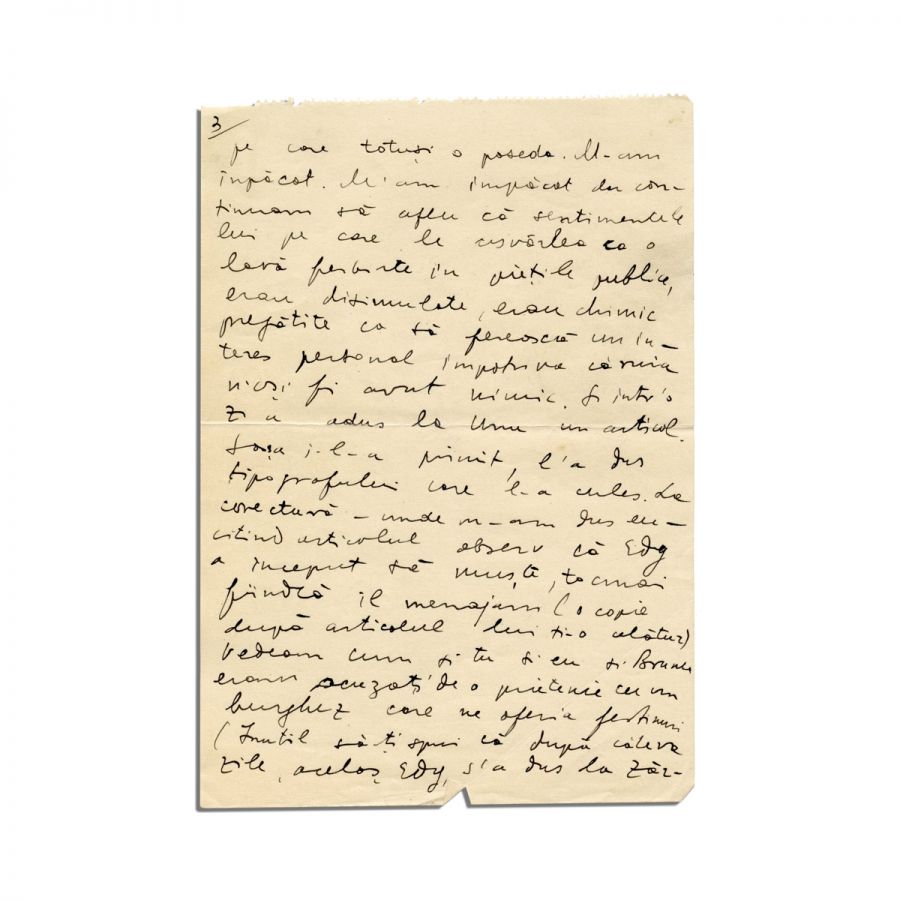 3/
pe care totuși o poseda. M-am
împăcat. M'am împăcat dar con-
tinuam să aflu că sentimentele
lui pe care le asvârlea ca o
lavă fierbinte în piețile publice,
erau disimulate, erau chimic
pregătite ca să ferească un in-
teres personal împotriva căruia
n'ași fi avut nimic. Și intr'o
zi a adus la Unu un articol.
Sașa i-l-a primit, l'a dus
tipografului care l-a cules. La
corectură – unde m-am dus eu –
citind articolul observ că Edy
a început să muște, tocmai
fiindcă îl menajam (o copie
după articolul lui ți-o alătur)
Vedeam cum și tu și eu și Brunea
eram acuzați de o prietenie cu un
burghez care ne oferia festinuri
(Inutil să-ți spui că după câteva
zile, acelaș Edy, s'a dus la Zăr-